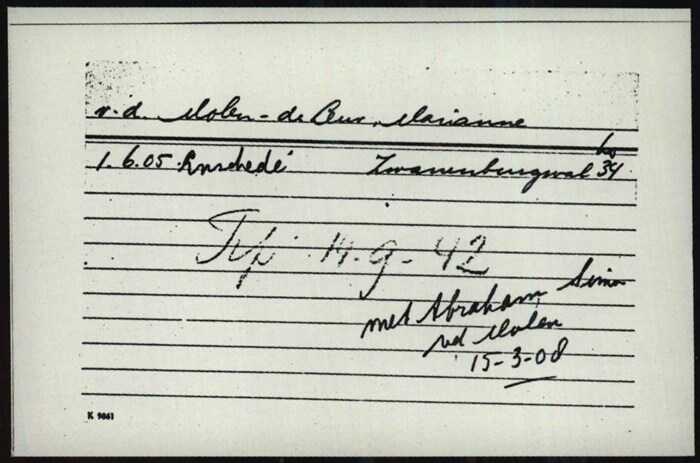 v. d. Molen - de Beer, Marianne
ho
1.6.05 Enschedé Zwanenburgwal 34
Trp. 14-9-42
met Abraham Simon
vd Molen
15-3-08
K 9861